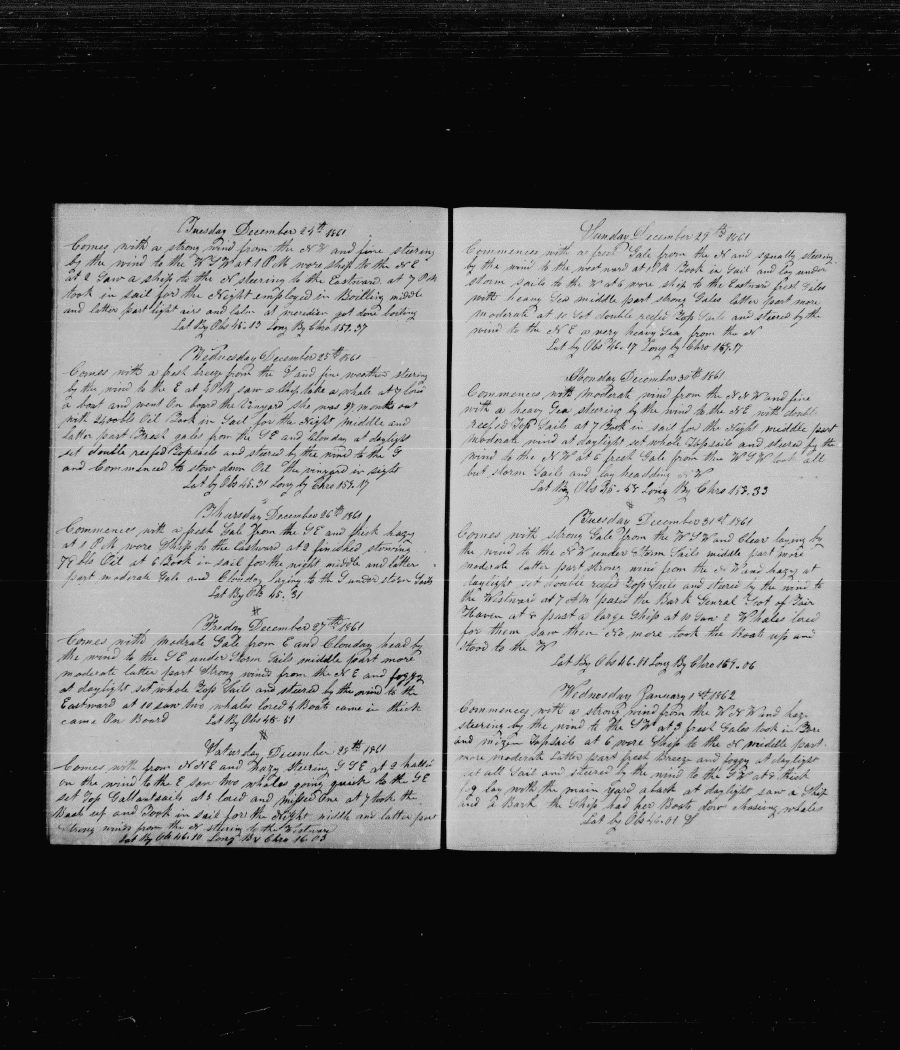 Tuesday December 24th 1861
Comes with a strong wind from the N W and fine steering
by the wind to the W S W at 1 P M wore ship to the N E
at 2 Saw a ship to the N steering to the Eastward at 7 P M
took in sail for the Night employed in Boilling middle
and latter part light airs and calm at meridian got done boiling
Lat By Obs 45.13 Long By Chro 157.37
Wednesday December 25th 1861
Comes with a fresh breeze from the S and fine weather steering
by the wind to the E at 2 P M saw a ship take a whale at 7 lored
a boat and went On board the Vinyard She was 27 months out
with 2400 bls Oil Took in Sail for the Night Middle and
latter part Fresh gales from the S E and Clouday at daylight
set double reefed Topsails and steered by the wind to the S
and Commenced to stow down Oil The vinyard in sight
Lat by Obs 45.31 Long by Chro 157.17
Thursday December 26th 1861
Commences with a fresh Gale from the S E and thick hazy
at 1 P M wore Ship to the Eastward at 2 finished stowing
78 bls Oil at 6 Took in sail for the night middle and latter
part moderate Gale and Clouday laying to the S under storm Sails
Lat By Obs 45.31
Freday December 27th 1861
Comes with modrate Gale from E and Clouday head by
the wind to the S E under Storm Sails middle part more
moderate latter part Strong winds from the N E and foggy
at daylight set whole Top Sails and steered by the wind to the
Eastward at 10 saw two whales lored 4 Boats came in thick
came On Board Lat By Obs 45.51
Saturday December 28th 1861
Comes with from N N E and Hazy Steering S S E at 2 halled
on the wind to the E saw two whales going quick to the S E
set Top Gallantsails at 3 lored and missed one at 7 took the
Boats up and Took in sail for the Night middle and latter part
Strong winds from the N steering to the Westward
Lat By Obs 46.10 Long By Chro 16.03
Sunday December 29th 1861
Commences with a fresh Gale from the N and squally steering
by the wind to the westward at P M Took in Sail and lay under
storm sails to the W at 6 wore ship to the Eastward fresh Gales
with heavy Sea middle part strong Gales latter part more
moderate at 10 Set double reefed Top Sails and steered by the
wind to the N E a very heavy Sea from the N
Lat by Obs 46.17 Long by Chro 157.17
Monday December 30th 1861
Commences with Moderate wind from the N N W and fine
with a heavy Sea steering by the wind to the N E with double
reefed Top Sails at 7 Took in sail for the Night middle part
moderate wind at daylight set whole Topsails and steered by the
wind to the N W at 6 fresh Gale from the W S W took all
but storm Sails and lay headding N W
Lat By Obs 45-58 Long By Chro 157.33
Tuesday December 31st 1861
Comes with strong Gale from the W S W and Clear laying by
the wind to the N W under Storm Sails middle part more
moderate latter part strong wind from the N W and hazy at
daylight set double reefed Top Sails and steered by the wind to
the Westward at 7 A M pased the Bark Genral Scot of Fair
Haven at 8 past a large Ship at 10 Saw 2 Whales lored
for them saw then No more took the Boats up and
Stood to the W
Lat By Obs 46.01 Long By Chro 157-06
Wednesday January 1st 1862
Commences with a strong wind from the W N W and haze
steering by the wind to the S W at 3 fresh Gales took in Fore
and mizen Topsails at 6 wore Ship to the N middle part
more moderate latter part fresh breeze and foggy at daylight
set all Sail and steered by the wind to the S W at 8 thick
fog lay with the main yard aback at daylight saw a Ship
and a Bark the Ship had her Boats down chasing whales
Lat by Obs 46.01 S